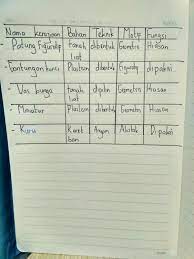 Nama kerajaan Bahan Teknik Motif Fungsi
- Patung Figuratip tanah liat dibentuk Geometris Hiasan
- Gantungan kunci Plastisin dibentuk Figuratip dipakai
- Vas bunga tanah dipilin Geometris Hiasan
- Miniatur Plastisin dibentuk Geometris Hiasan
- Karet ban Anyam Abstrak Dipakai